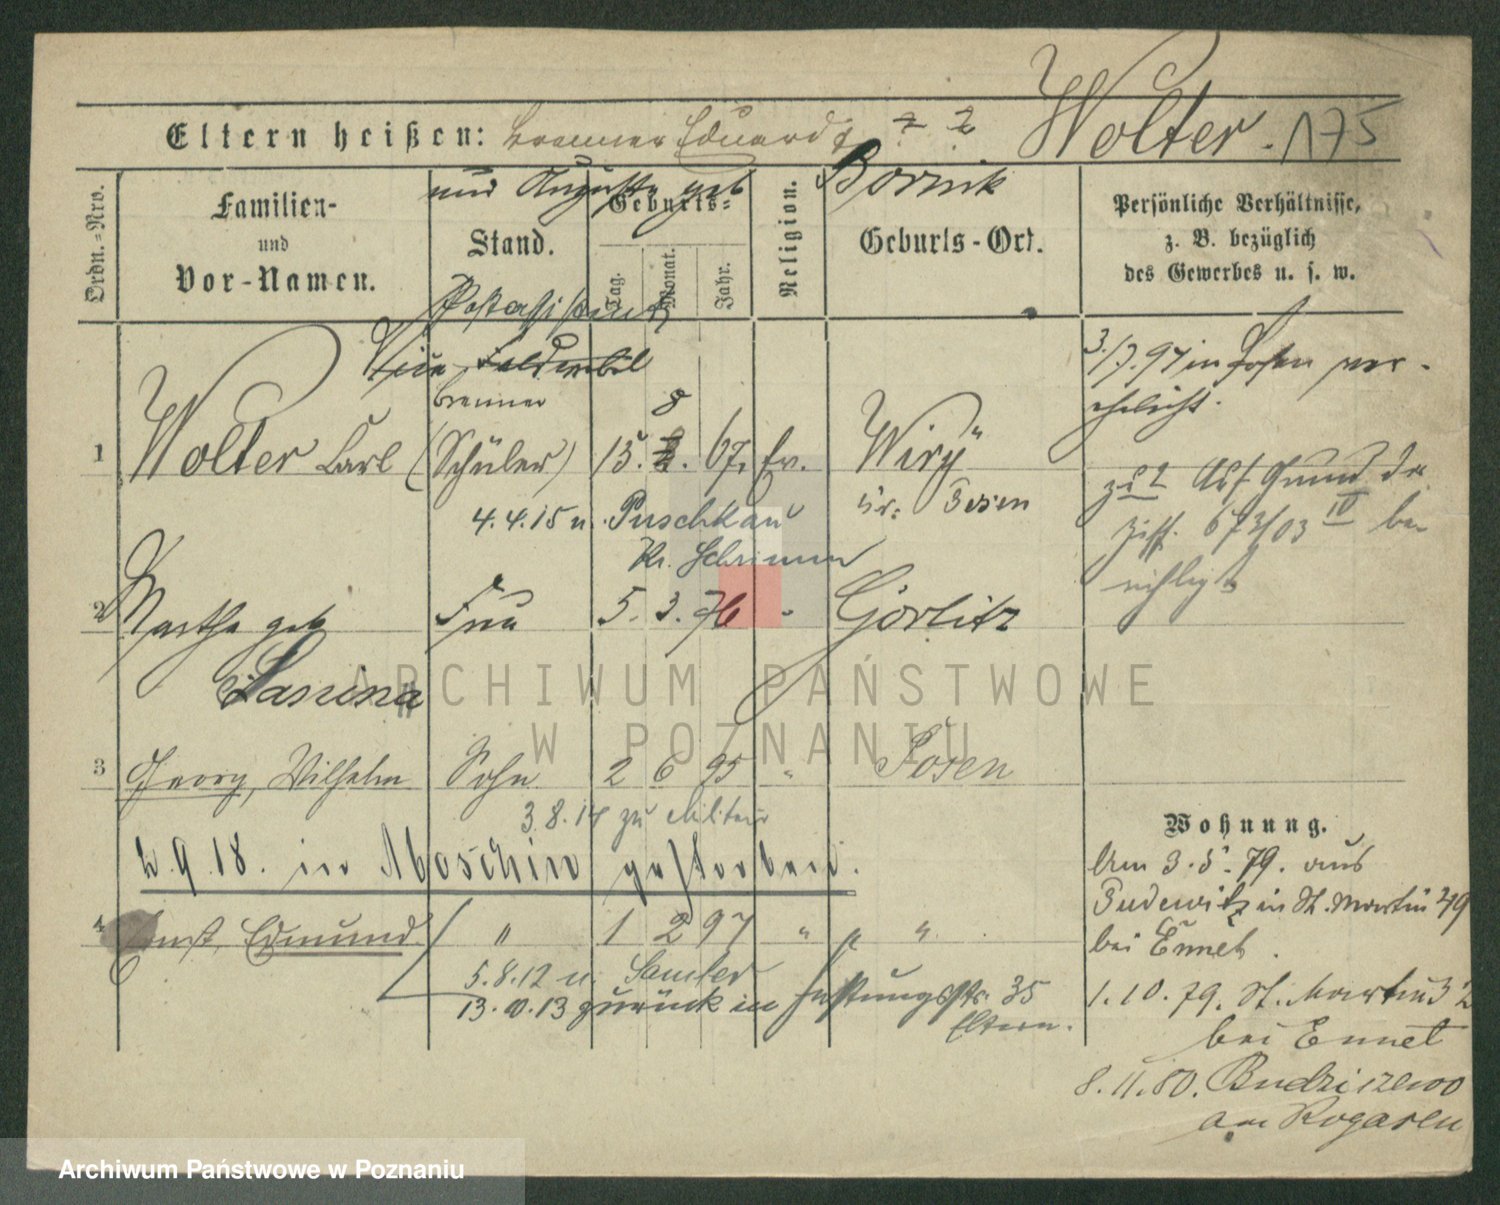 Wolter. 175
Eltern heißen: Brenner Eduard
und Auguste geb Bornik
Ordn.=Nro.
Familien-
und
Vor-Namen.
Stand.
Geburts=
Tag.
Monat.
Jahr.
Religion.
Geburts-Ort.
Persönliche Verhältnisse,
z. B. bezüglich
des Gewerbes u. s. w.
Postassistent
Vice-Feldwebel
Brenner
8
1 Wolter Carl (Schüler) 15. 67. Ev. Wiry
Kr. Posen
3./7.97 in Posen ver-
ehelicht.
zu 2 Auf Grund der
673/03 IV be-
richtigt
4.4.15 n. Puschkau
Kr. Schrimm
2 Martha geb Frau 5. 3. 76 " Görlitz
3 Georg, Wilhelm Sohn 2 6 95 " Posen
3.8.14 zu Militair
9.18. in Moschin gestorben.
4 Ernst, Edmund " 1 2 97 " " "
5.8.12 n. Samter
13.10.13 zurück in Festungsstr. 35
Eltern.
Wohnung.
Am 3.5.79. aus
Pudewitz in St. Martin 49
bei Ennet.
1.10.79. St. Martin 32
bei Ennet
8.11.80. Budziszewo
am Rogasen
ARCHIWUM PAŃSTWOWE
W POZNANIU
Archiwum Państwowe w Poznaniu